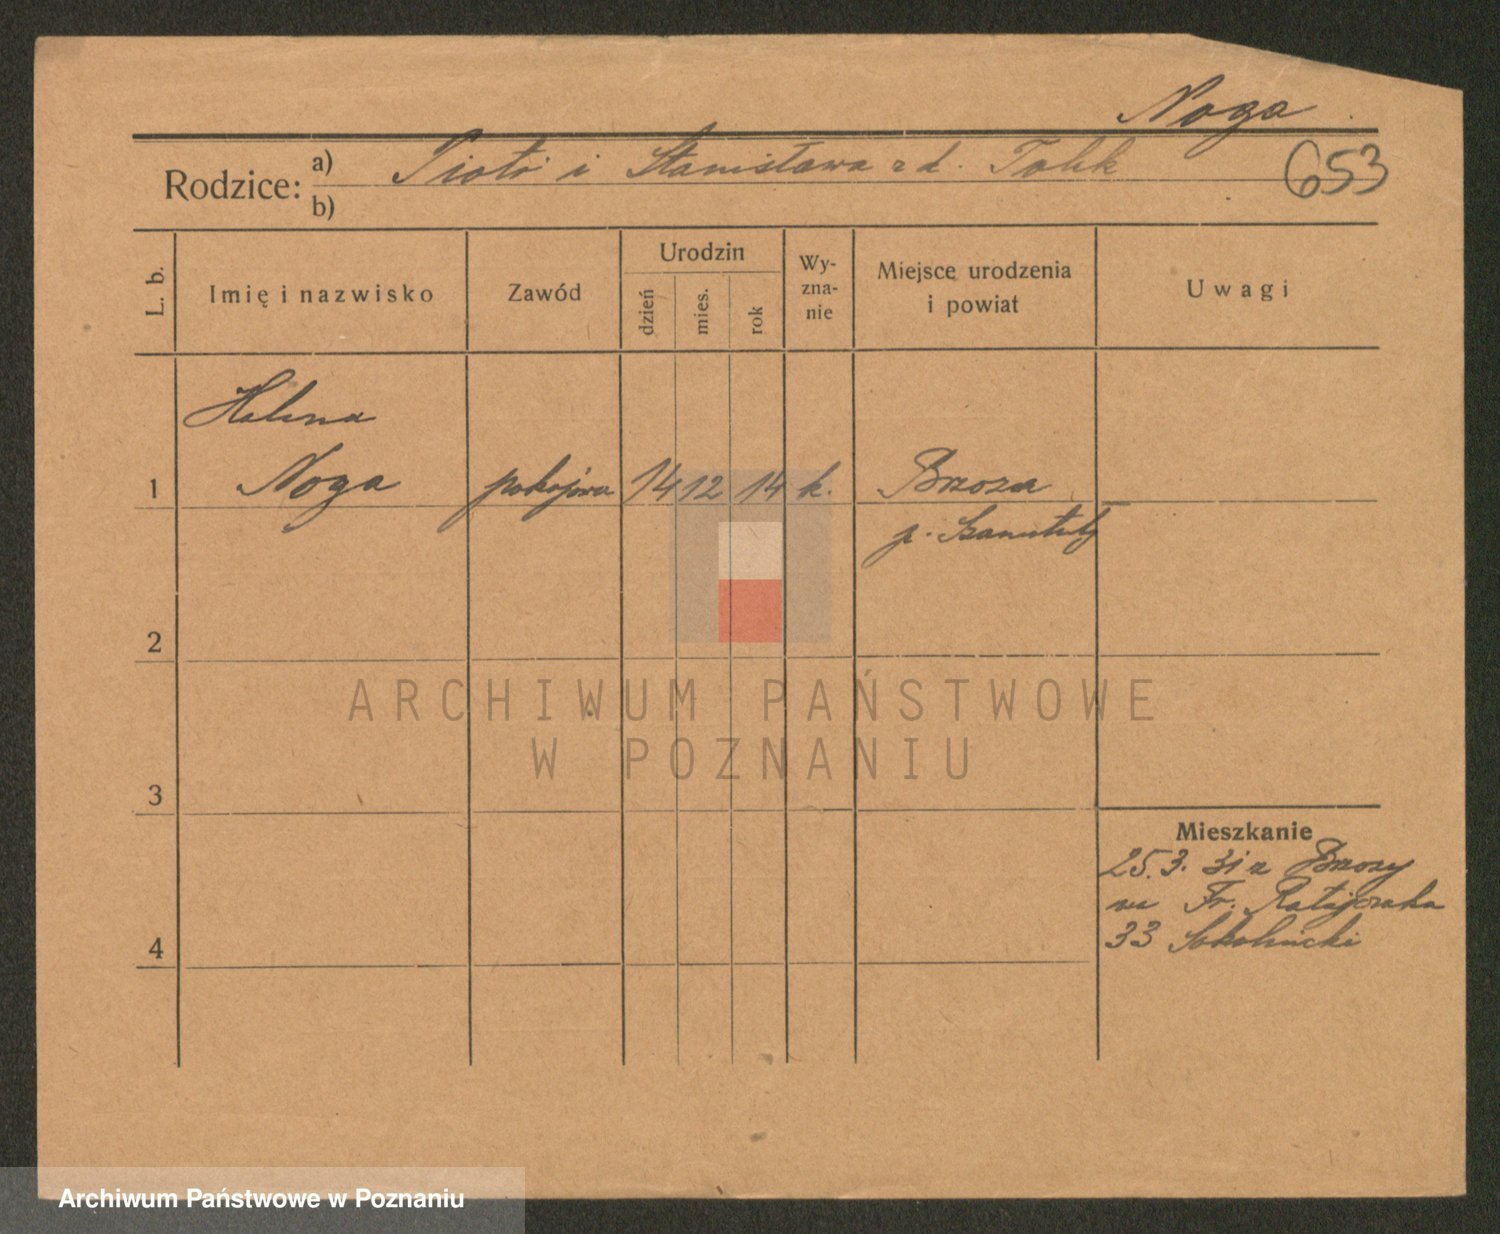 Noga
Rodzice: a) Piotr i Stanisława z d. Tolik
b)
653
L. b.
Imię i nazwisko
Zawód
Urodzin
dzień
mies.
rok
Wy-
zna-
nie
Miejsce urodzenia
i powiat
Uwagi
Halina
1 Noga pokojowa 14 12 14 k. Brzoza
p. Szamotuły
2
ARCHIWUM PAŃSTWOWE
W POZNANIU
3
Mieszkanie
25.3.31 z Brzozy
na Fr. Ratajczaka
33 Sokolnicki
4
Archiwum Państwowe w Poznaniu